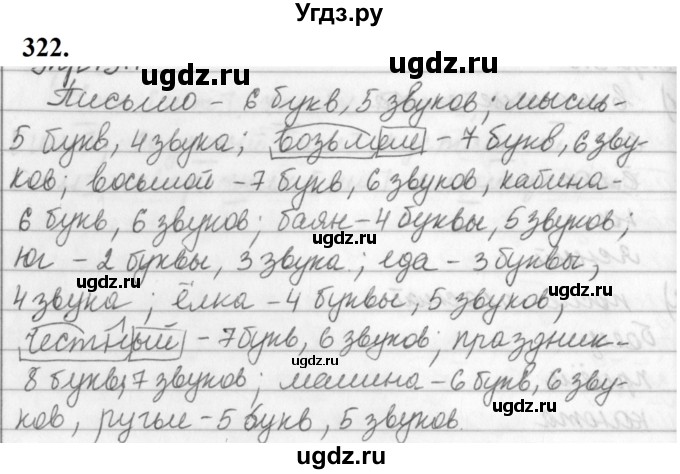 Угдз.ру
322.
Письмо - 6 букв, 5 звуков; мысль-
5 букв, 4 звука; возьмем - 7 букв, 6 зву-
ков; восьмой - 7 букв, 6 звуков, кабина-
6 букв, 6 звуков; баян - 4 буквы, 5 звуков;
юг - 2 буквы, 3 звука; еда - 3 буквы,
4 звука; ёлка - 4 буквы, 5 звуков,
честный - 7 букв, 6 звуков; праздник-
8 букв, 7 звуков; машина - 6 букв, 6 зву-
ков, ружье - 5 букв, 5 звуков.
угдз.ру
угдз.ру
угдз.ру
угдз.ру
угдз.ру